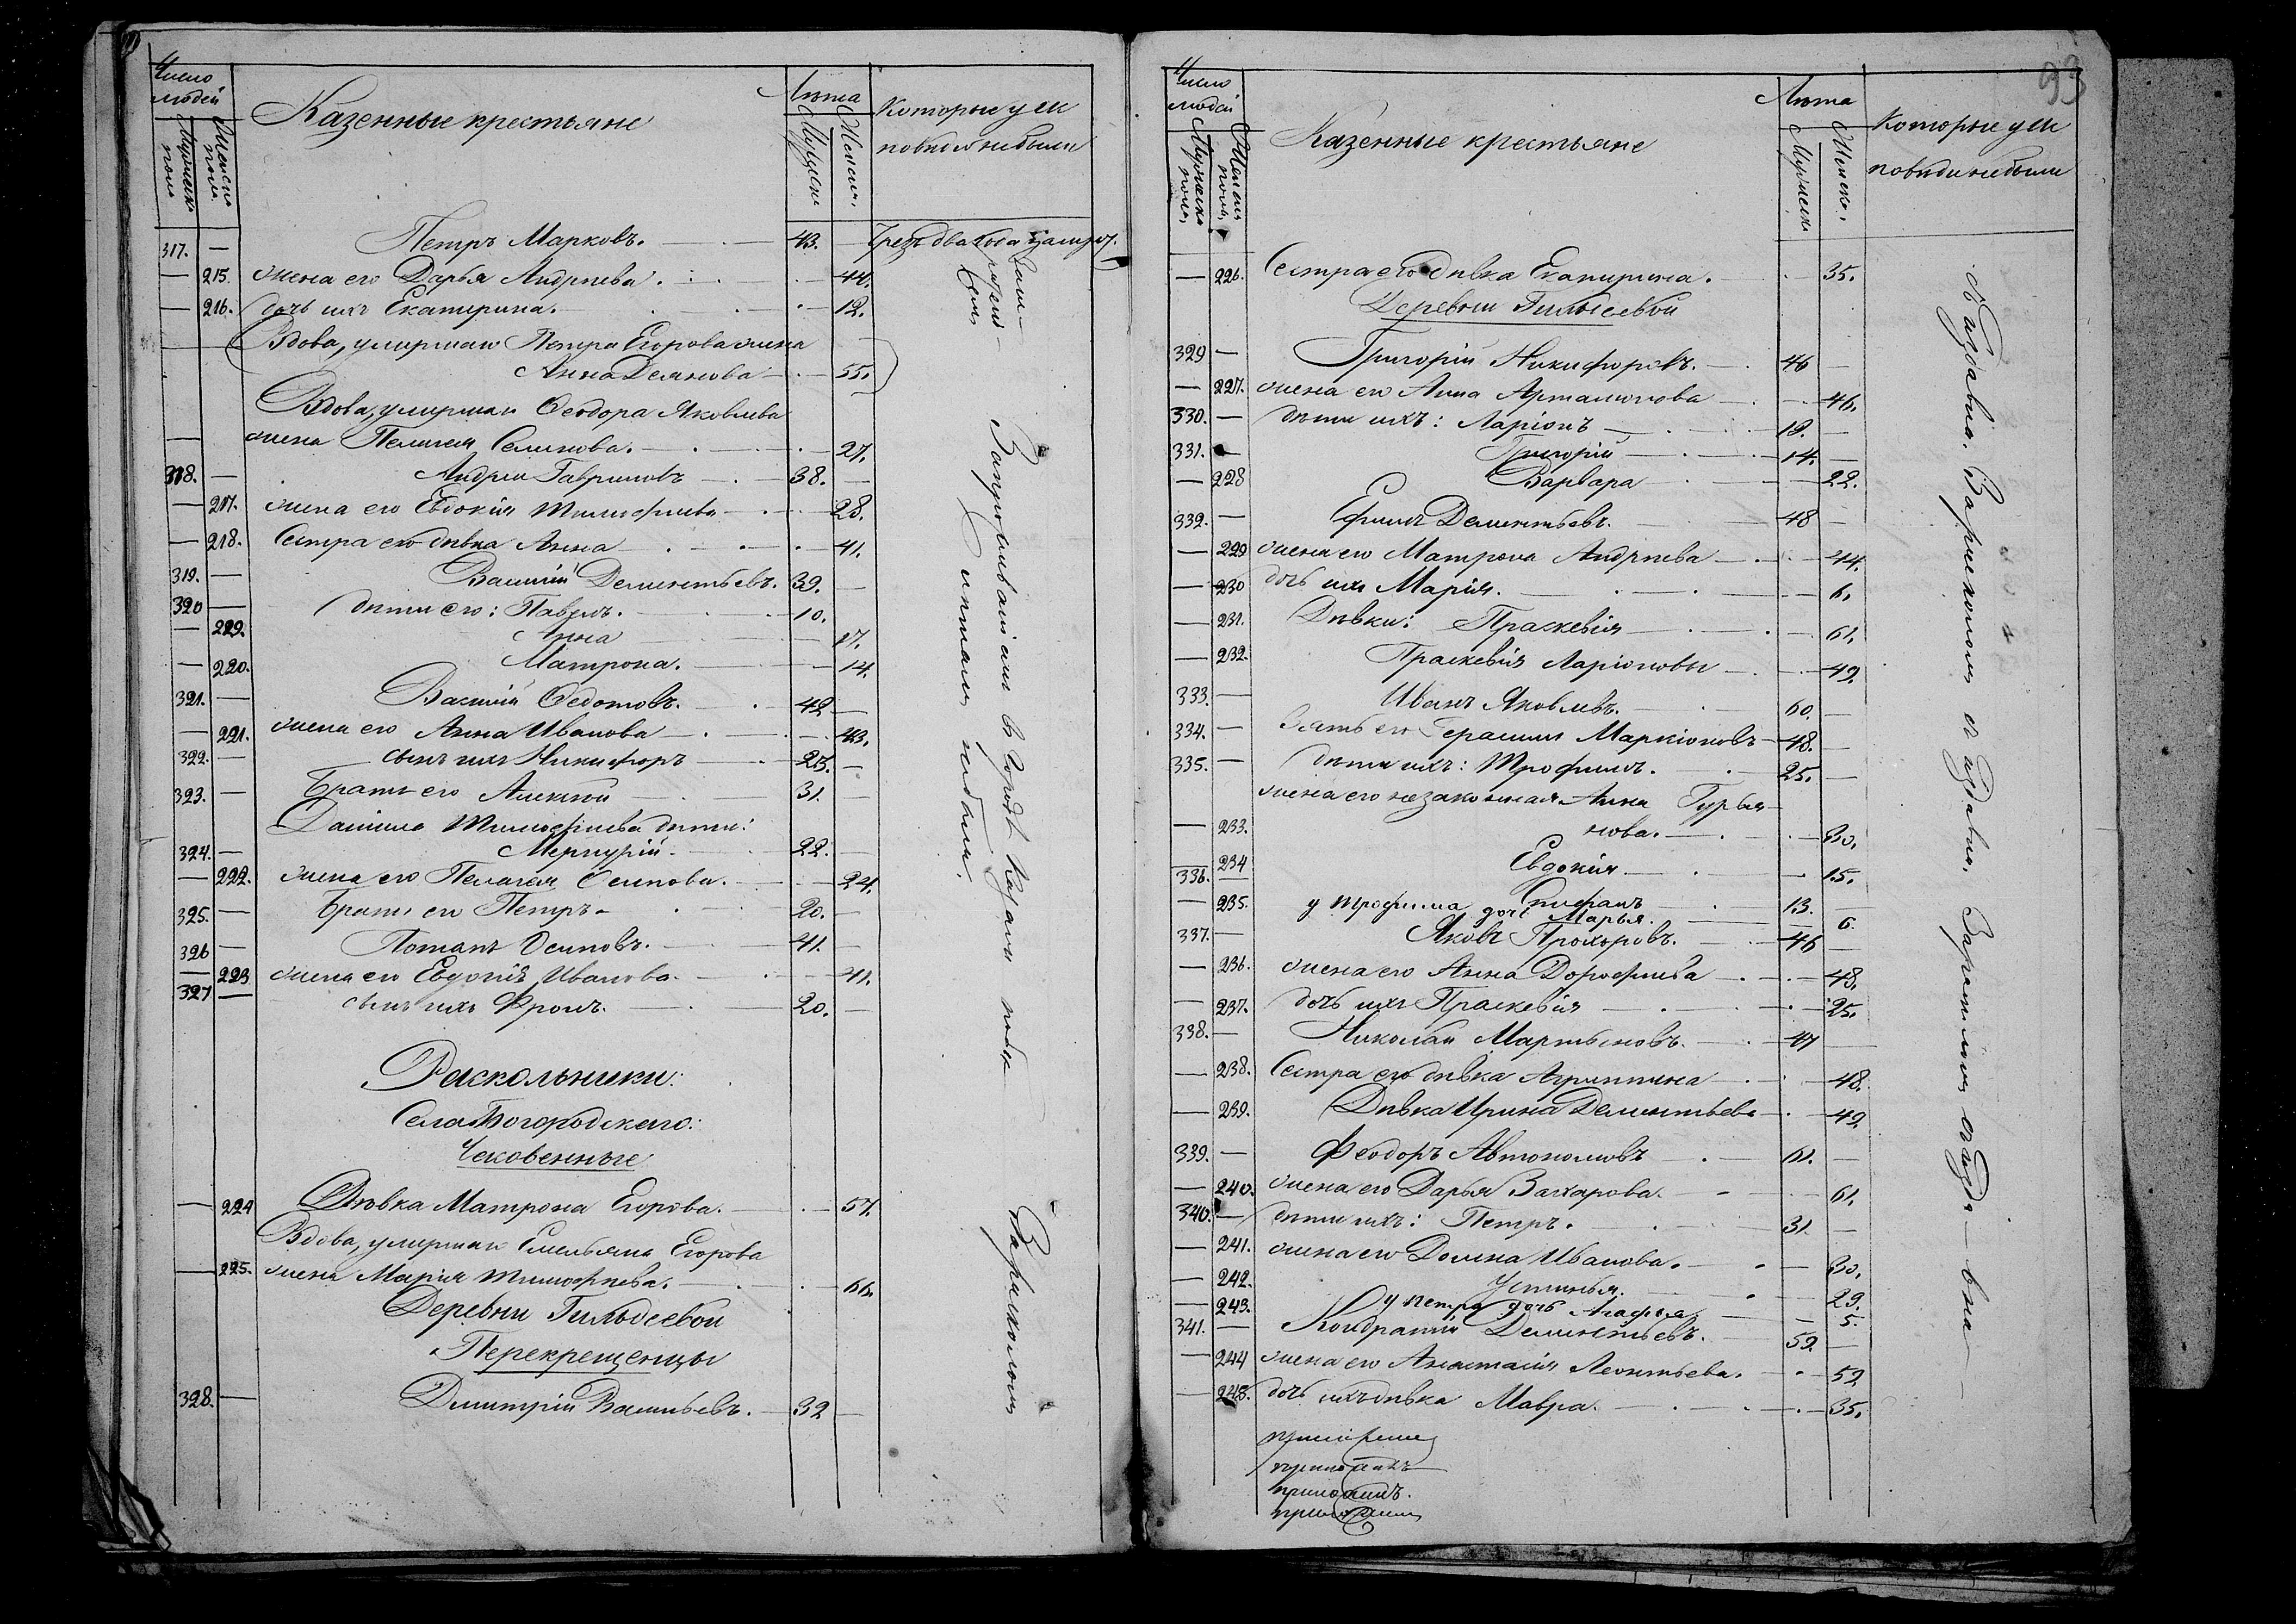 Число людей
Мужеска пола
Женска пола
Казенные крестьяне
Лѣта
Мужеска
Женска
Которые у исповѣди не были
317. — Петръ Марковъ. 43. — Чрезъ два года
— 215. жена его Дарья Андрѣева. — 44.
— 216. дочь ихъ Екатерина. — 12.
Вдова, умершаго Петра Егорова жена
Анна Демянова — 55.
Вдова, умершаго Феодора Яковлева
жена Пелагея Семенова. — 27.
318. — Андрей Гавриловъ 38. —
— 217. жена его Евдокія Тимофѣева — 28.
— 218. Сестра его дѣвка Анна — 41.
319. — Василій Дементьевъ. 39. —
320 — дѣти его: Павелъ. 10.
— 219. Анна — 17.
— 220. Матрона. — 14.
321. — Василій Федотовъ. 42 —
— 221. жена его Анна Иванова — 43.
322. — сынъ ихъ Никифоръ 23. —
323. — Братъ его Алексѣй 31. —
Даніила Тимофѣева дѣти:
324. — Меркурій. 22. —
— 222. жена его Пелагея Осипова. — 24.
325. — Братъ его Петръ 20. —
326 — Потапъ Осиповъ. 41. —
— 223 жена его Евдокія Иванова. — 41.
327 — сынъ ихъ Фролъ. 20. —
Раскольники:
Села Богородскаго:
— 224 Дѣвка Матрона Егорова. — 57.
Вдова, умершаго Емельяна Егорова
— 225. жена Марія Тимофѣева. — 66.
Деревни Гильдеевой
Перекрещенцы
328. — Димитрій Васильевъ. 32 —
въ городѣ Казани
Въ расколѣ
93
Число людей
Мужеска пола
Женска пола
Казенные крестьяне
Лѣта
Мужеска
Женска
Которые у исповѣди не были
— 226. Сестра его дѣвка Екатерина. — 35.
Деревни Гильдеевой
329 — Григорій Никифоровъ. 46 —
— 227. жена его Анна Артамонова — 46.
330. — дѣти ихъ: Ларіонъ 19. —
331. — Григорій 14. —
— 228 Варвара — 22.
332. — Ефимъ Дементьевъ. 48 —
— 229 жена его Матрона Андрѣева — 44.
— 230 дочь ихъ Марія. — 6.
— 231. Дѣвки: Праскевія — 61.
— 232. Праскевія Ларіоновы — 49.
333. — Иванъ Яковлевъ. 60. —
334. — Зять его Герасимъ Маркіоновъ 48. —
335. — дѣти ихъ: Трофимъ. 25. —
жена его незаконная Анна Гурья-
— 233. нова. — 30.
234 Евдокія — 15.
336. — Епифанъ 13. —
— 235. у Трофима дочь Марья. — 6.
337. — Яковъ Прохоровъ. 46 —
— 236. жена его Анна Дорофѣева — 48.
— 237. дочь ихъ Праскевія — 25.
338. — Николай Мартьяновъ. 47 —
— 238. Сестра его дѣвка Агриппина — 48.
— 239. Дѣвка Ирина Дементьева — 49.
339. — Феодоръ Автономовъ 61. —
— 240. жена его Дарья Захарова. — 61.
340. — дѣти ихъ: Петръ. 31. —
— 241. жена его Домна Иванова. — 30.
— 242. Устинья. — 29.
— 243. у Петра дочь Агафья — 5.
341. — Кондратій Дементьевъ. 59. —
— 244 жена его Анастасія Леонтьева. — 52
— 245. дочь ихъ дѣвка Мавра. — 35.